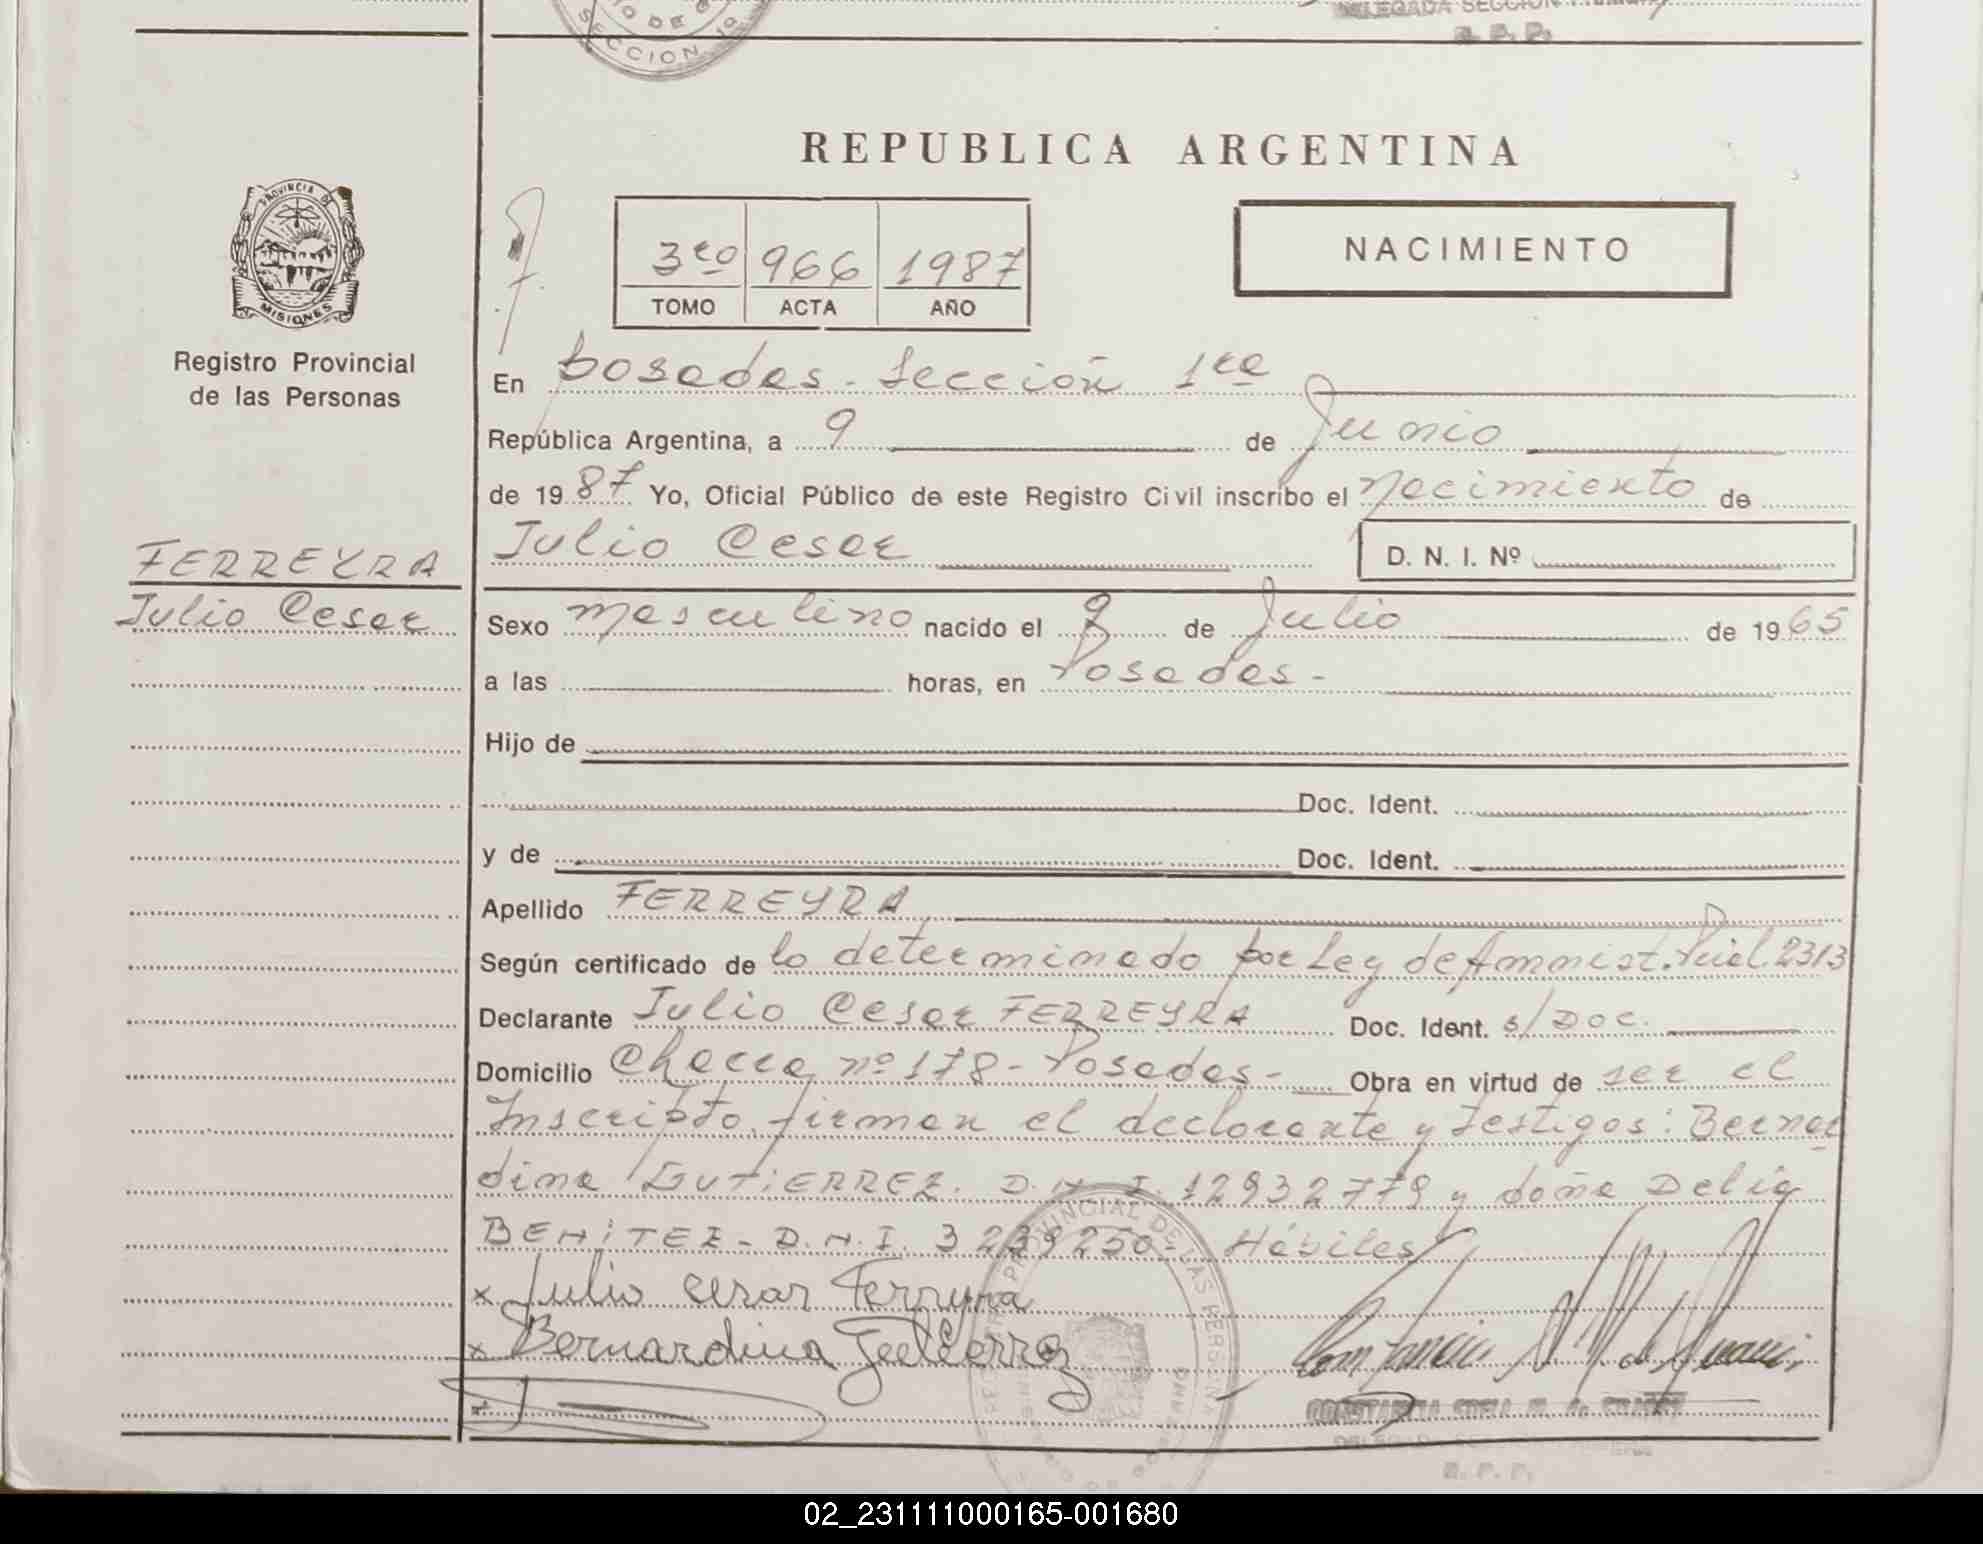 SECCION 1º
DELEGADA SECCION PRIMERA
R. P. P.
REPUBLICA ARGENTINA
PROVINCIA DE
MISIONES
Registro Provincial
de las Personas
3ro 966 1987
TOMO ACTA AÑO
NACIMIENTO
En Posadas - Sección 1ra
República Argentina, a 9 de Junio
de 1987 Yo, Oficial Público de este Registro Civil inscribo el Nacimiento de
Julio Cesar D. N. I. Nº
FERREYRA
Julio Cesar
Sexo Masculino nacido el 9 de Julio de 1965
a las horas, en Posadas -
Hijo de
Doc. Ident.
y de Doc. Ident.
Apellido FERREYRA
Según certificado de lo determinado por Ley de Amnist. Pcial 2313
Declarante Julio Cesar FERREYRA Doc. Ident. s/Doc.
Domicilio Chacra nº 178 - Posadas - Obra en virtud de ser el
Inscripto, firman el declarante y testigos: Bernar
dina GUTIERREZ. D.N.I. 12932779 y doña Delia
BENITEZ - D.N.I. 3239250 - Hábiles
x Julio cesar Ferryra
x Bernardina Gutierrez
x
R. P. P.
02_231111000165-001680